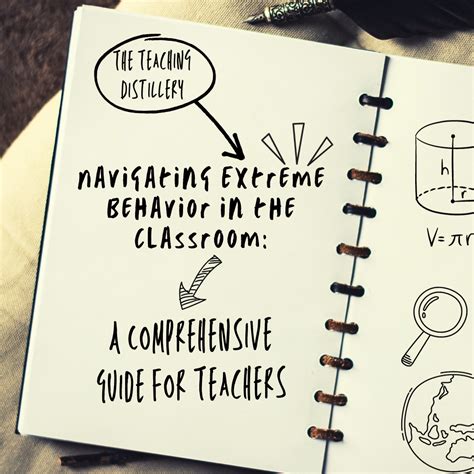 THE TEACHING
DISTILLERY
NAVIGATING EXTREME
BEHAVIOR IN THE
CLASSROOM:
A COMPREHENSIVE
GUIDE FOR TEACHERS
h
r
V=πr